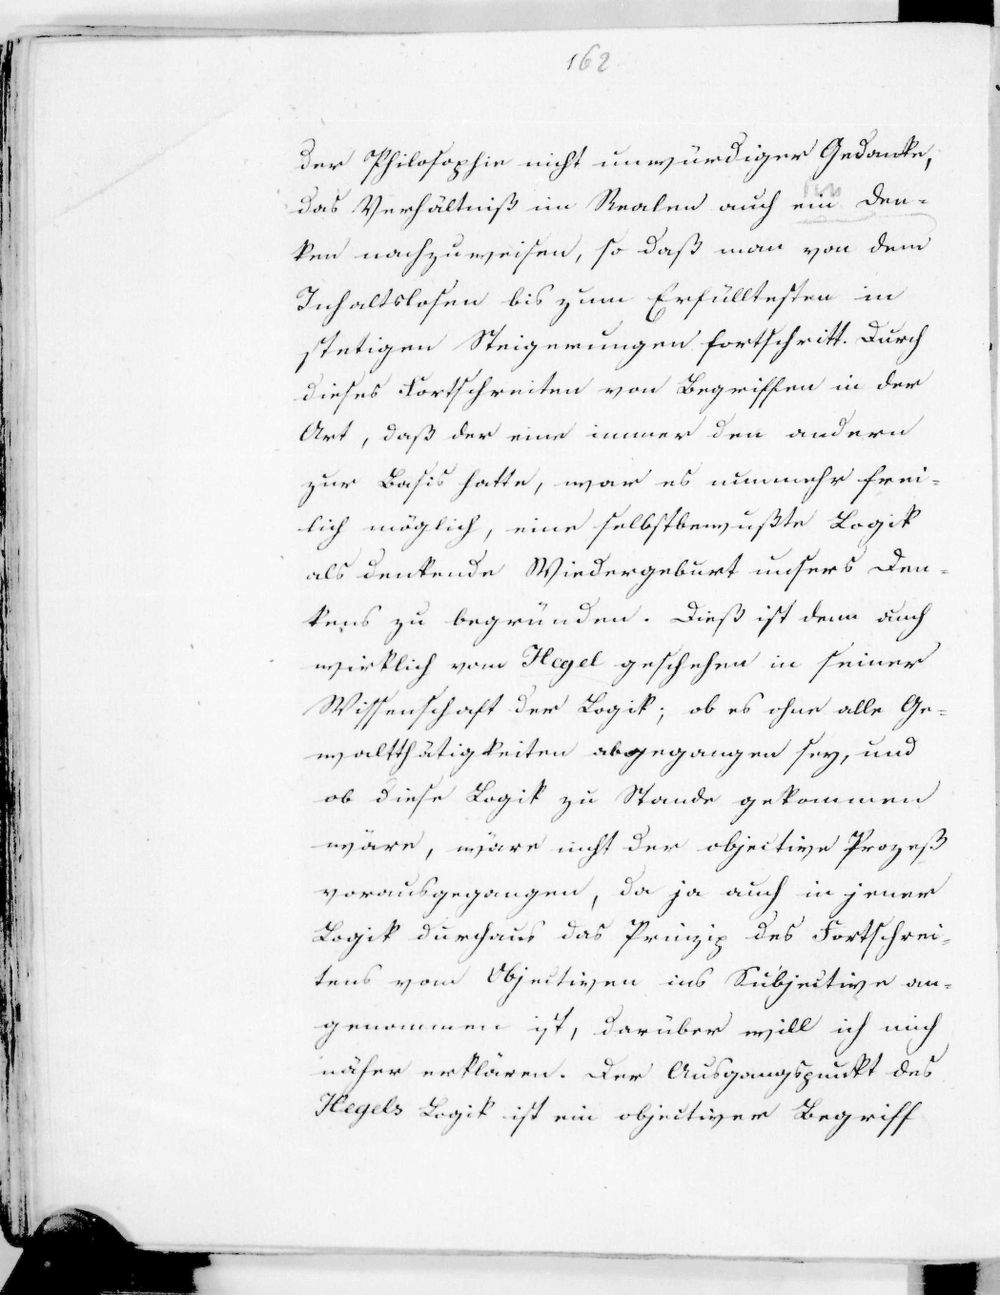 162
der Philosophie nicht unwürdiger Gedanke,
das Verhältniß im Realen auch ein Den-
ken nachzuweisen, so daß man von dem
Inhaltslosen bis zum Erfülltesten in
stetigen Steigerungen fortschritt. Durch
dieses Fortschreiten von Begriffen in der
Art, daß der eine immer den andern
zur Basis hatte, war es nunmehr frei-
lich möglich, eine selbstbewußte Logik
als denkende Wiedergeburt unsers Den-
kens zu begründen. Dieß ist denn auch
wirklich von Hegel geschehen in seiner
Wissenschaft der Logik; ob es ohne alle Ge-
waltthätigkeiten abgegangen sey, und
ob diese Logik zu Stande gekommen
wäre, wäre nicht der objective Prozeß
vorausgegangen, da ja auch in jener
Logik durchaus das Prinzip des Fortschrei-
tens vom Objectiven ins Subjective an-
genommen ist, darüber will ich mich
näher erklären. Der Ausgangspunkt des
Hegels Logik ist ein objectiver Begriff